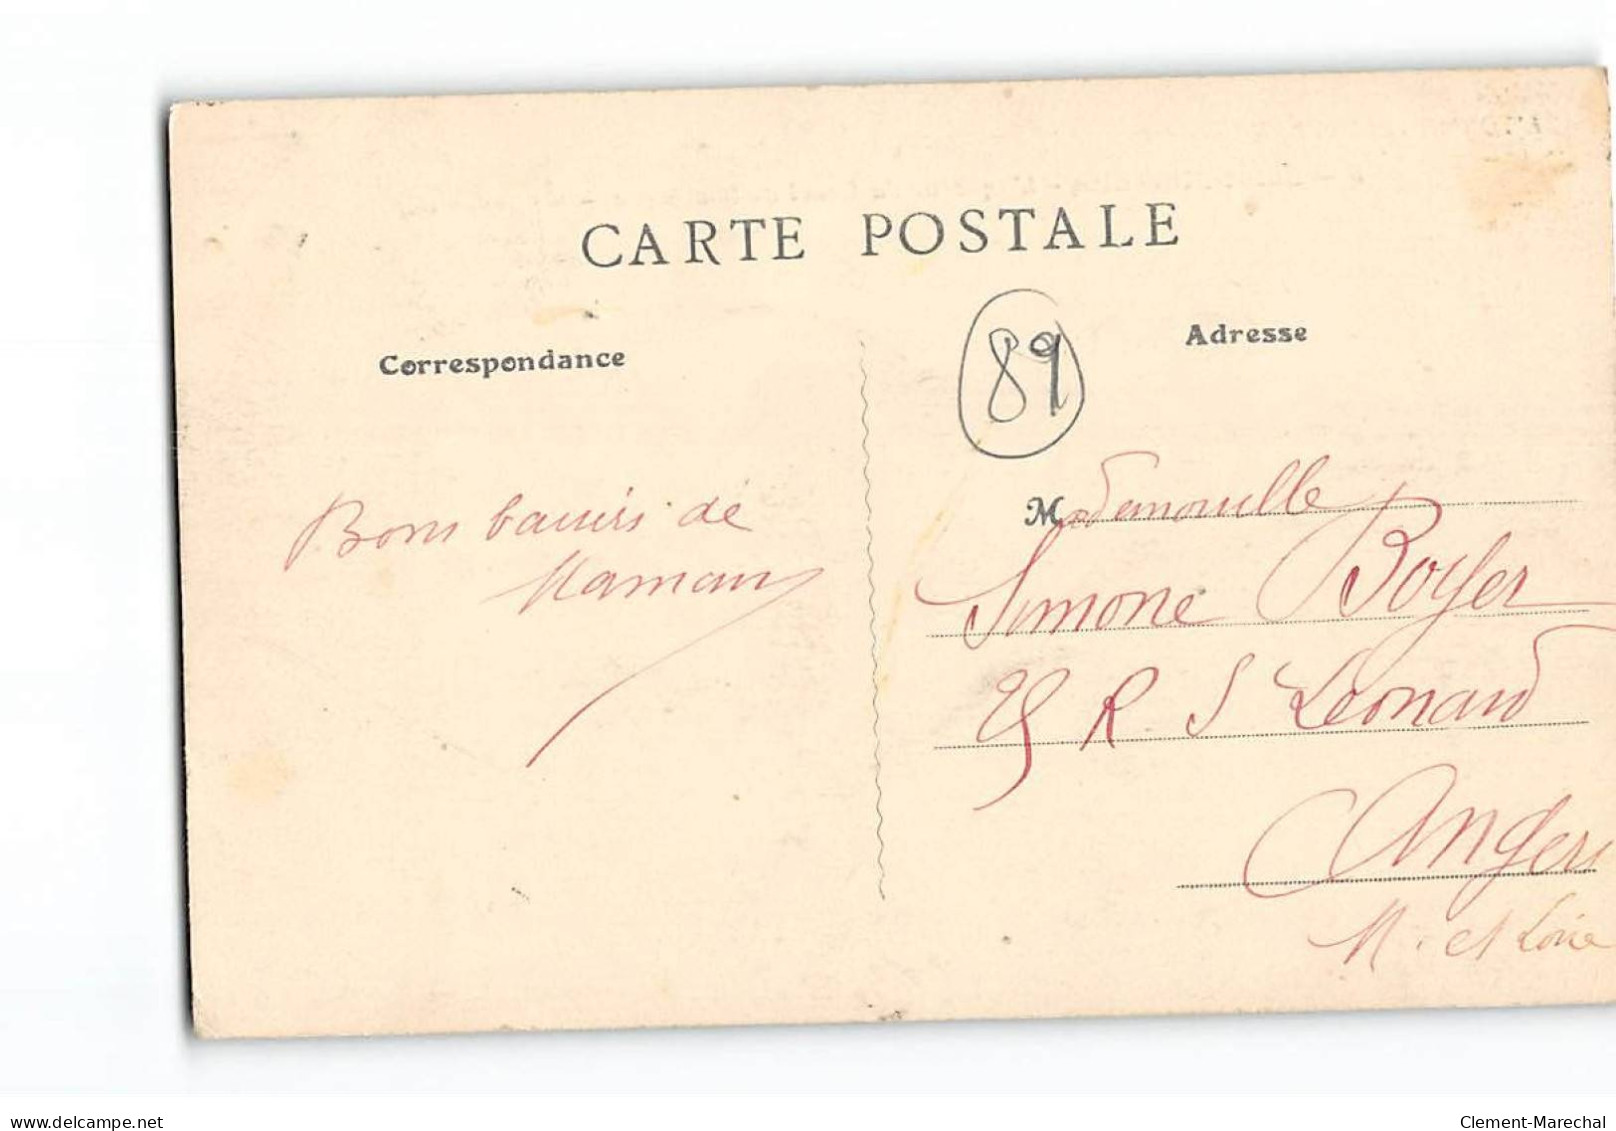 CARTE POSTALE
Correspondance
Adresse
89
Bons baisers de
Maman
Mademoiselle
Simone Boyer
25 R S Leonard
Angers
M. et Loire
delcampe.net
Clement-Marechal